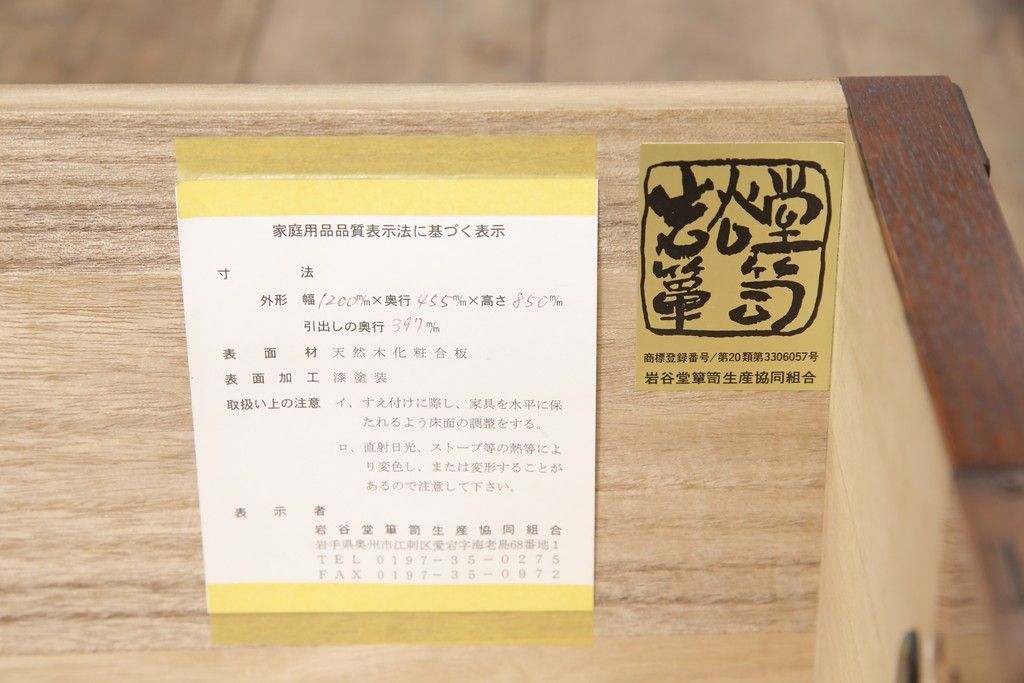 家庭用品品質表示法に基づく表示
寸法
外形 幅1200m/m×奥行455m/m×高さ850m/m
引出しの奥行397m/m
表面材 天然木化粧合板
表面加工 漆塗装
取扱い上の注意 イ、すえ付けに際し、家具を水平に保
たれるよう床面の調整をする。
ロ、直射日光、ストーブ等の熱等によ
り変色し、または変形することが
あるので注意して下さい。
表示者
岩谷堂簞笥生産協同組合
岩手県奥州市江刺区愛宕字海老島68番地1
TEL 0197-35-0275
FAX 0197-35-0972
岩谷堂
簞笥
商標登録番号/第20類第3306057号
岩谷堂簞笥生産協同組合